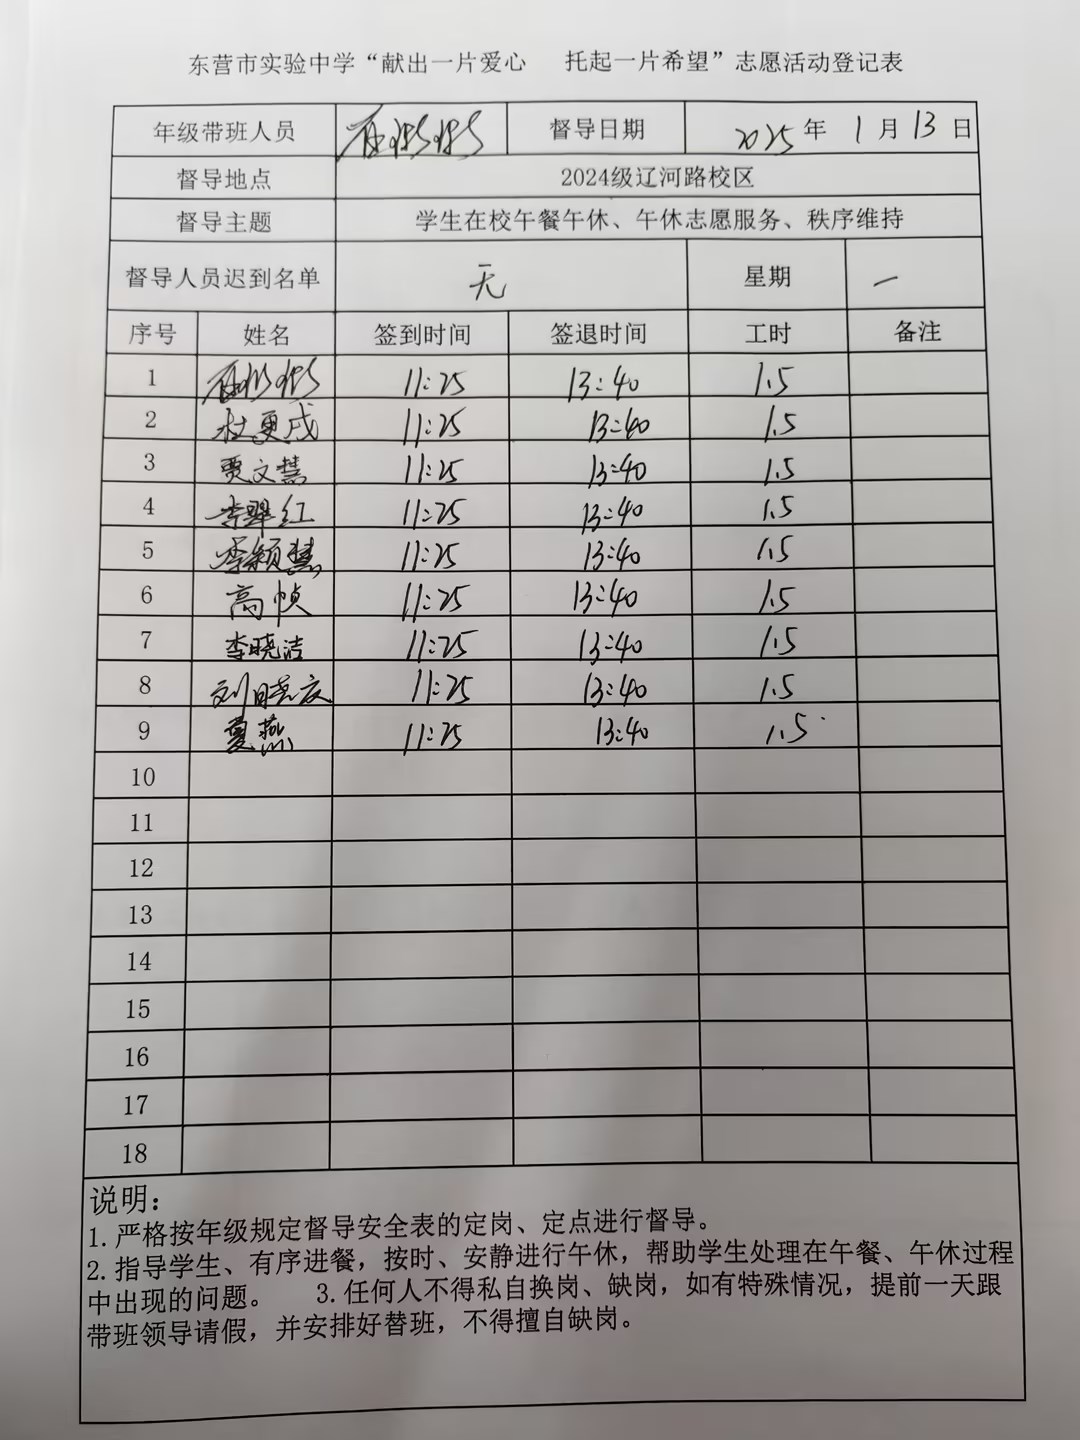 东营市实验中学“献出一片爱心 托起一片希望”志愿活动登记表
年级带班人员 督导日期 2025年1月13日
督导地点 2024级辽河路校区
督导主题 学生在校午餐午休、午休志愿服务、秩序维持
督导人员迟到名单 无 星期 一
序号 姓名 签到时间 签退时间 工时 备注
1 11:25 13:40 1.5
2 杜更戌 11:25 13:40 1.5
3 贾文慧 11:25 13:40 1.5
4 李翠红 11:25 13:40 1.5
5 李颖慧 11:25 13:40 1.5
6 高帧 11:25 13:40 1.5
7 李晓洁 11:25 13:40 1.5
8 刘晓庆 11:25 13:40 1.5
9 夏燕 11:25 13:40 1.5
10
11
12
13
14
15
16
17
18
说明：
1.严格按年级规定督导安全表的定岗、定点进行督导。
2.指导学生、有序进餐，按时、安静进行午休，帮助学生处理在午餐、午休过程
中出现的问题。 3.任何人不得私自换岗、缺岗，如有特殊情况，提前一天跟
带班领导请假，并安排好替班，不得擅自缺岗。